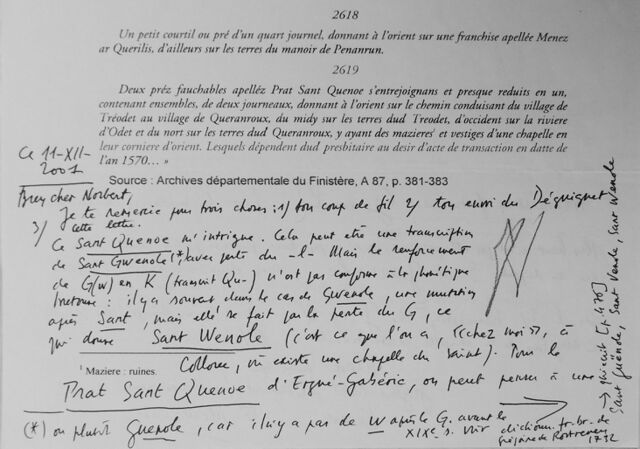 2618
Un petit courtil ou pré d'un quart journel, donnant à l'orient sur une franchise apellée Menez
ar Querilis, d'ailleurs sur les terres du manoir de Penanrun.
2619
Deux préz fauchables apelléz Prat Sant Quenoe s'entrejoignans et presque reduits en un,
contenant ensembles, de deux journeaux, donnant à l'orient sur le chemin conduisant du village de
Tréodet au village de Queranroux, du midy sur les terres dud Treodet, d'occident sur la riviere
d'Odet et du nort sur les terres dud Queranroux, y ayant des mazieres¹ et vestiges d'une chapelle en
leur corniere d'orient. Lesquels dépendent dud presbitaire au desir d'acte de transaction en datte de
l'an 1570... »
Ce 11-XII-
2001
Source : Archives départementale du Finistère, A 87, p. 381-383
cher Norbert,
Je te remercie pour trois choses : 1) ton coup de fil 2) ton envoi du Déguignet
3) cette lettre.
Ce Sant Quenoe m'intrigue. Cela peut être une transcription
de Sant Gwenole (*), avec perte du -l- Mais le renforcement
de G(w) en K (transcrit Qu-) n'est pas conforme à la phonétique
bretonne : il y a souvent dans le cas de Gwenole, une mutation
après Sant, mais elle se fait par la perte du G, ce
qui donne Sant Wenole (c'est ce que l'on a, «chez moi», à
Collorec, où existe une chapelle du saint). Pour le
¹ Maziere : ruines.
Prat Sant Quenoe d'Ergué-Gabéric, on peut penser à une
(*) ou plutôt Guenole, car il n'y a pas de w après le G. avant le
XIXe s. Voir diction. fr.-br. de
Grégoire de Rostrenen
1732
→ qui écrit [p. 470]
Sant Guënole, Sant Venole, Sant Wenole